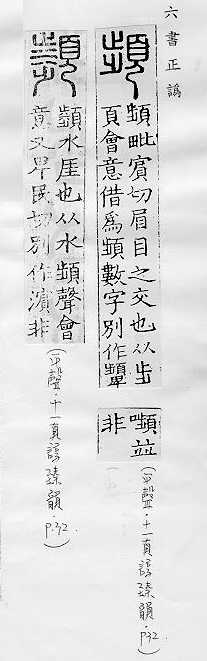 六書正譌
頻
頻毗賓切眉目之交也从步
頁會意借爲頻數字別作顰
嚬竝
非
(平聲.十一真諄臻韻.P.32.)
瀕
瀕水厓也从水頻聲會
意又卑民切別作濵非
(平聲.十一真諄臻韻.P.32.)